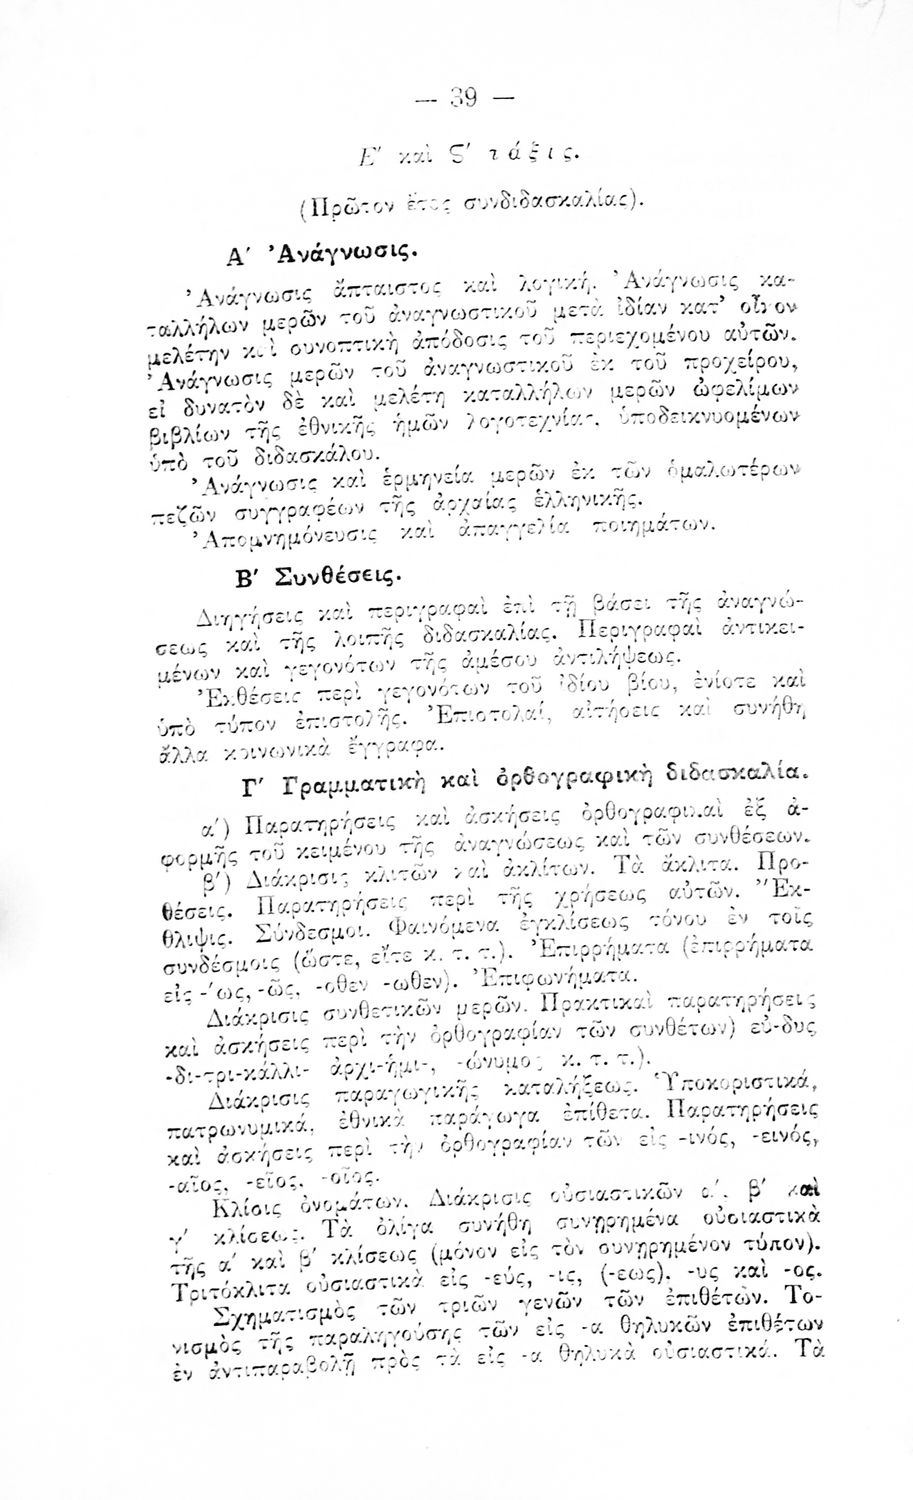 — 39 —
Ε' καὶ Ϛ' τάξις.
(Πρῶτον ἔτος συνδιδασκαλίας).
Α' Ἀνάγνωσις.
Ἀνάγνωσις ἄπταιστος καὶ λογική. Ἀνάγνωσις κα-
ταλλήλων μερῶν τοῦ ἀναγνωστικοῦ μετὰ ἰδίαν κατ' οἶκον
μελέτην καὶ συνοπτικὴ ἀπόδοσις τοῦ περιεχομένου αὐτῶν.
Ἀνάγνωσις μερῶν τοῦ ἀναγνωστικοῦ ἐκ τοῦ προχείρου,
εἰ δυνατὸν δὲ καὶ μελέτη καταλλήλων μερῶν ὠφελίμων
βιβλίων τῆς ἐθνικῆς ἡμῶν λογοτεχνίας, ὑποδεικνυομένων
ὑπὸ τοῦ διδασκάλου.
Ἀνάγνωσις καὶ ἑρμηνεία μερῶν ἐκ τῶν ὁμαλωτέρων
πεζῶν συγγραφέων τῆς ἀρχαίας ἑλληνικῆς.
Ἀπομνημόνευσις καὶ ἀπαγγελία ποιημάτων.
Β' Συνθέσεις.
Διηγήσεις καὶ περιγραφαὶ ἐπὶ τῇ βάσει τῆς ἀναγνώ-
σεως καὶ τῆς λοιπῆς διδασκαλίας. Περιγραφαὶ ἀντικει-
μένων καὶ γεγονότων τῆς ἀμέσου ἀντιλήψεως.
Ἐκθέσεις περὶ γεγονότων τοῦ ἰδίου βίου, ἐνίοτε καὶ
ὑπὸ τύπον ἐπιστολῆς. Ἐπιστολαί, αἰτήσεις καὶ συνήθη
ἄλλα κοινωνικὰ ἔγγραφα.
Γ' Γραμματικὴ καὶ ὀρθογραφικὴ διδασκαλία.
α') Παρατηρήσεις καὶ ἀσκήσεις ὀρθογραφικαὶ ἐξ ἀ-
φορμῆς τοῦ κειμένου τῆς ἀναγνώσεως καὶ τῶν συνθέσεων.
β') Διάκρισις κλιτῶν καὶ ἀκλίτων. Τὰ ἄκλιτα. Προ-
θέσεις. Παρατηρήσεις περὶ τῆς χρήσεως αὐτῶν. Ἔκ-
θλιψις. Σύνδεσμοι. Φαινόμενα ἐγκλίσεως τόνου ἐν τοῖς
συνδέσμοις (ὥστε, εἴτε κ. τ. τ.). Ἐπιρρήματα (ἐπιρρήματα
εἰς -'ως, -ῶς, -οθεν -ωθεν). Ἐπιφωνήματα.
Διάκρισις συνθετικῶν μερῶν. Πρακτικαὶ παρατηρήσεις
καὶ ἀσκήσεις περὶ τὴν ὀρθογραφίαν τῶν συνθέτων) εὐ-δυς
-δι-τρι-κάλλι- ἀρχι-ἡμι-, -ώνυμος κ. τ. τ.).
Διάκρισις παραγωγικῆς καταλήξεως. Ὑποκοριστικά,
πατρωνυμικά, ἐθνικὰ παράγωγα ἐπίθετα. Παρατηρήσεις
καὶ ἀσκήσεις περὶ τὴν ὀρθογραφίαν τῶν εἰς -ινός, -εινός,
-αῖος, -εῖος, -οῖος.
Κλίσις ὀνομάτων. Διάκρισις οὐσιαστικῶν α', β' καὶ
γ' κλίσεως. Τὰ ὀλίγα συνήθη συνῃρημένα οὐσιαστικὰ
τῆς α' καὶ β' κλίσεως (μόνον εἰς τὸν συνῃρημένον τύπον).
Τριτόκλιτα οὐσιαστικὰ εἰς -εύς, -ις, (-εως), -υς καὶ -ος.
Σχηματισμὸς τῶν τριῶν γενῶν τῶν ἐπιθέτων. Το-
νισμὸς τῆς παραληγούσης τῶν εἰς -α θηλυκῶν ἐπιθέτων
ἐν ἀντιπαραβολῇ πρὸς τὰ εἰς -α θηλυκὰ οὐσιαστικά. Τὰ